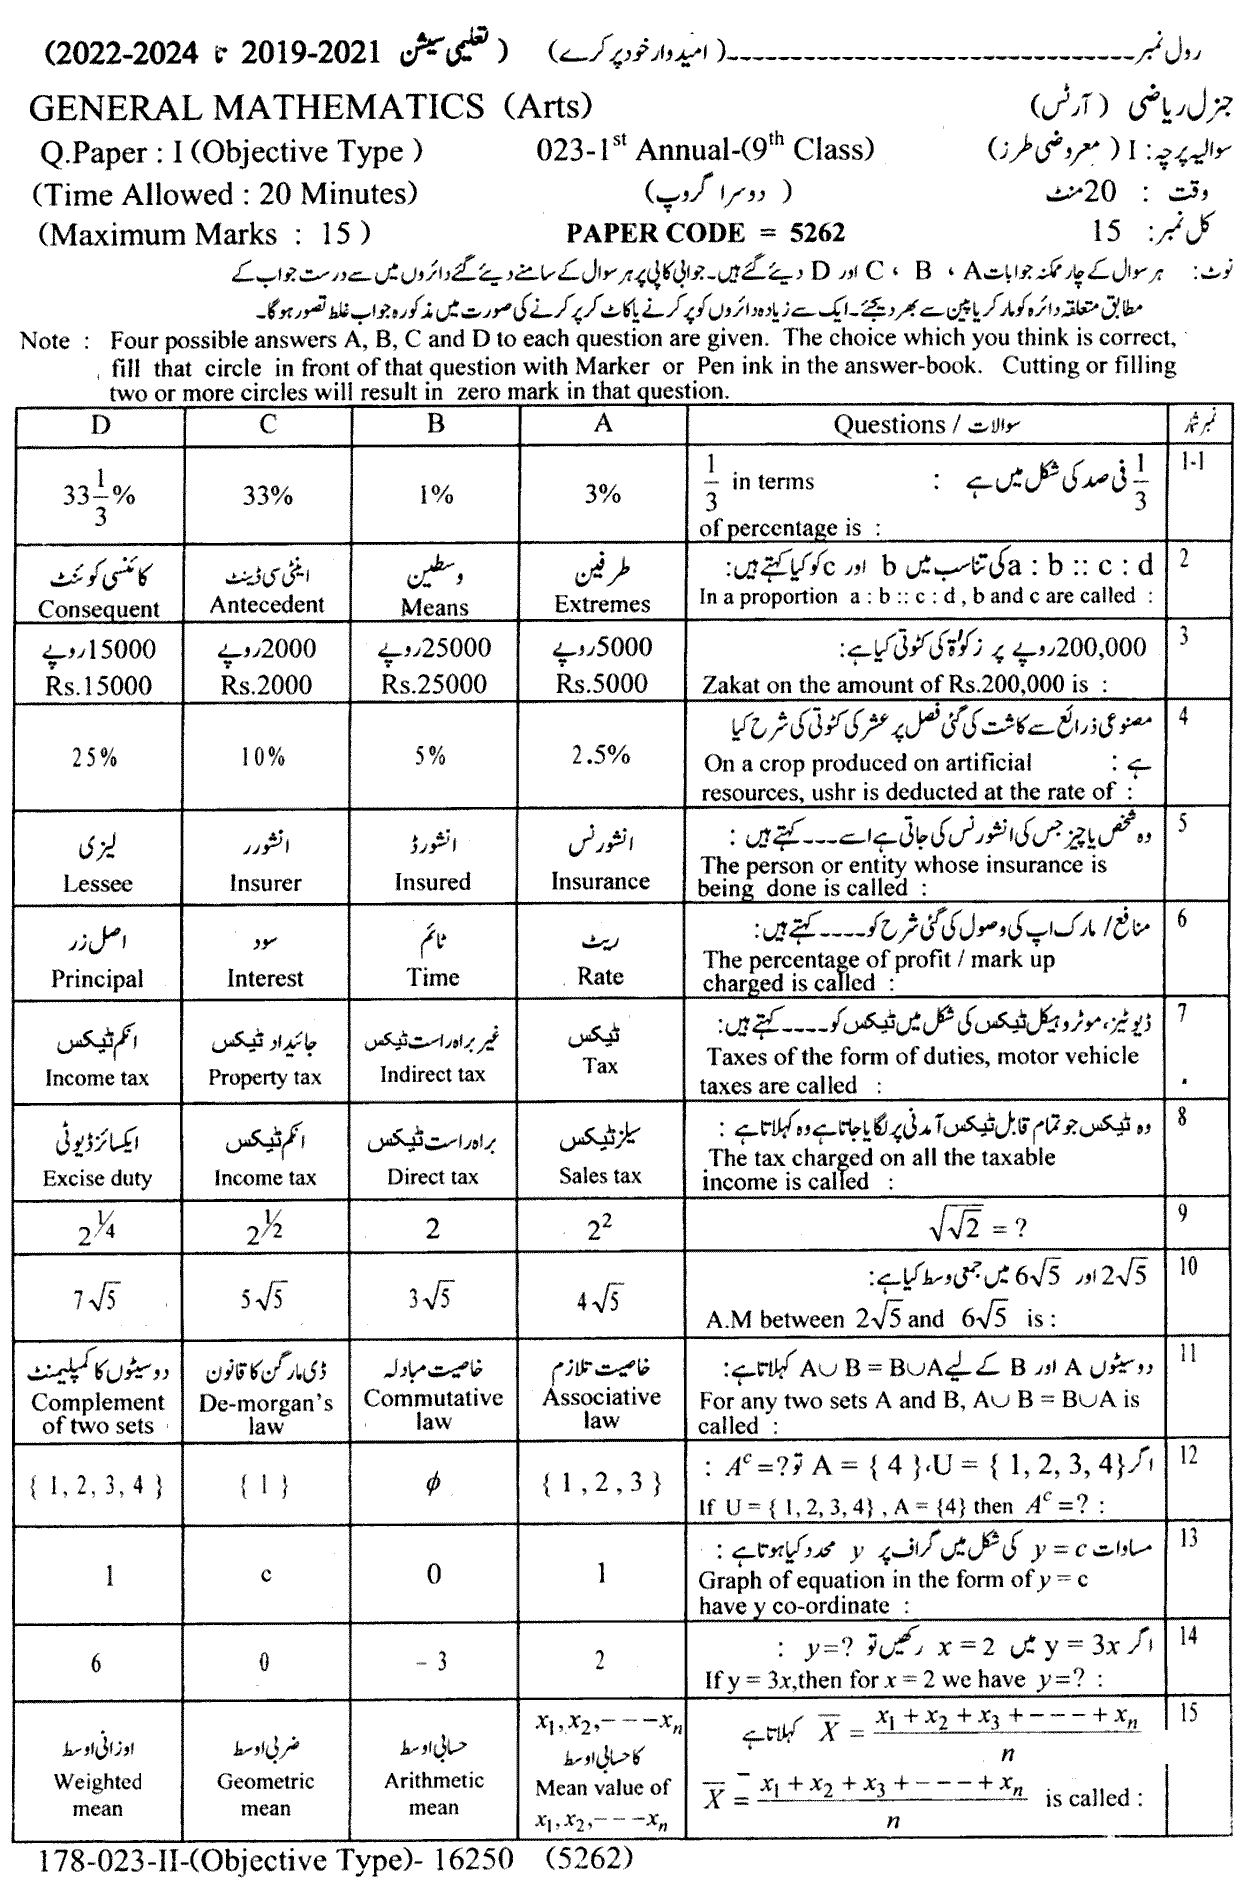 رول نمبر------------------------------(امیدوار خود پر کرے) (تعلیمی سیشن 2021-2019 تا 2024-2022)
GENERAL MATHEMATICS (Arts) جنرل ریاضی (آرٹس)
Q.Paper : I (Objective Type ) 023-1st Annual-(9th Class) سوالیہ پرچہ : I (معروضی طرز)
(Time Allowed : 20 Minutes) (دوسرا گروپ) وقت : 20 منٹ
(Maximum Marks : 15 ) PAPER CODE = 5262 کل نمبر: 15
نوٹ: ہر سوال کے چار ممکنہ جوابات A ، B ، C اور D دیئے گئے ہیں۔ جوابی کاپی پر ہر سوال کے سامنے دیئے گئے دائروں میں سے درست جواب کے
مطابق متعلقہ دائرہ کو مارکر یا پین سے بھر دیجئے۔ ایک سے زیادہ دائروں کو پر کرنے یا کاٹ کر پر کرنے کی صورت میں مذکورہ جواب غلط تصور ہوگا۔
Note : Four possible answers A, B, C and D to each question are given. The choice which you think is correct,
fill that circle in front of that question with Marker or Pen ink in the answer-book. Cutting or filling
two or more circles will result in zero mark in that question.
D C B A Questions / سوالات نمبر شمار
33 1/3 % 33% 1% 3% 1/3 in terms 1/3 فی صد کی شکل میں ہے : 1-1
of percentage is :
کانسی کوئنٹ اینٹی سی ڈینٹ وسطین طرفین a : b :: c : d کی تناسب میں b اور c کو کیا کہتے ہیں: 2
Consequent Antecedent Means Extremes In a proportion a : b :: c : d , b and c are called :
15000روپے 2000روپے 25000روپے 5000روپے 200,000روپے پر زکوٰۃ کی کٹوتی کیا ہے: 3
Rs.15000 Rs.2000 Rs.25000 Rs.5000 Zakat on the amount of Rs.200,000 is :
مصنوعی ذرائع سے کاشت کی گئی فصل پر عشر کی کٹوتی کی شرح کیا 4
25% 10% 5% 2.5% On a crop produced on artificial ہے :
resources, ushr is deducted at the rate of :
لیزی انشورر انشورڈ انشورنس وہ شخص یا چیز جس کی انشورنس کی جاتی ہے اسے ---- کہتے ہیں : 5
Lessee Insurer Insured Insurance The person or entity whose insurance is
being done is called :
اصل زر سود ٹائم ریٹ منافع/ مارک اپ کی وصول کی گئی شرح کو---- کہتے ہیں: 6
Principal Interest Time Rate The percentage of profit / mark up
charged is called :
انکم ٹیکس جائیداد ٹیکس غیر براہ راست ٹیکس ٹیکس ڈیوٹیز، موٹر وہیکل ٹیکس کی شکل میں ٹیکس کو---- کہتے ہیں: 7
Income tax Property tax Indirect tax Tax Taxes of the form of duties, motor vehicle
taxes are called :
ایکسائز ڈیوٹی انکم ٹیکس براہ راست ٹیکس سیلز ٹیکس وہ ٹیکس جو تمام قابل ٹیکس آمدنی پر لگایا جاتا ہے وہ کہلاتا ہے : 8
Excise duty Income tax Direct tax Sales tax The tax charged on all the taxable
income is called :
2^¼ 2^½ 2 2² √√2 = ? 9
7√5 5√5 3√5 4√5 2√5 اور 6√5 میں جمعی وسط کیا ہے: 10
A.M between 2√5 and 6√5 is :
دو سیٹوں کا کمپلیمنٹ ڈی مارگن کا قانون خاصیت مبادلہ خاصیت تلازم دو سیٹوں A اور B کے لیے A∪ B = B∪A کہلاتا ہے: 11
Complement De-morgan's Commutative Associative For any two sets A and B, A∪ B = B∪A is
of two sets law law law called :
{ 1, 2, 3, 4 } { 1 } ϕ { 1 , 2 , 3 } اگر U = { 1, 2, 3, 4}، A = { 4 } تو A^c =? : 12
If U = { 1, 2, 3, 4} , A = {4} then A^c =? :
مساوات y = c کی شکل میں گراف پر y محدد کیا ہوتا ہے : 13
1 c 0 1 Graph of equation in the form of y = c
have y co-ordinate :
اگر y = 3x میں x = 2 رکھیں تو y=? : 14
6 0 – 3 2 If y = 3x,then for x = 2 we have y=? :
اوزانی اوسط ضربی اوسط حسابی اوسط x₁, x₂,---xₙ کا حسابی اوسط X̄ = (x₁ + x₂ + x₃ + ---- + xₙ)/n کہلاتا ہے 15
Weighted mean Geometric mean Arithmetic mean Mean value of x₁, x₂,---xₙ X̄ = (x₁ + x₂ + x₃ + ---- + xₙ)/n is called :
178-023-II-(Objective Type)- 16250 (5262)